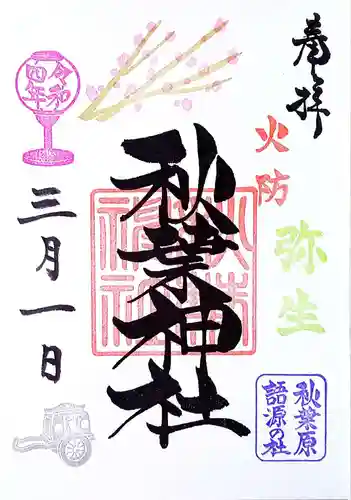 奉拝
火防
弥生
秋葉神社
秋葉神社
秋葉原
語源の社
令和
四年
三月一日